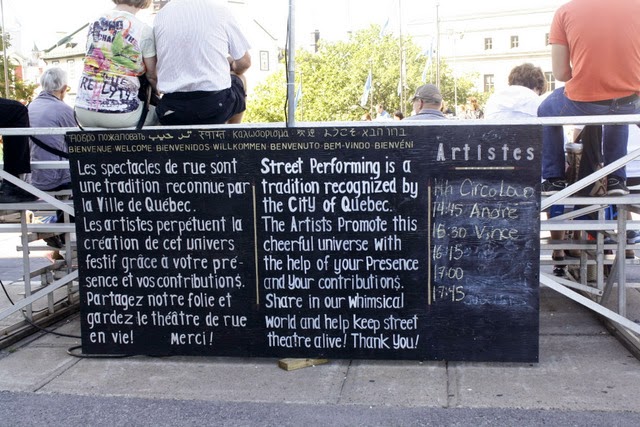 Добро пожаловать स्वागत καλωσορίσμα
BIENVENUE WELCOME BIENVENIDOS WILLKOMMEN BENVENUTO BEM-VINDO BIENVÉNI
Les spectacles de rue sont
une tradition reconnue par
la Ville de Québec.
Les artistes perpétuent la
création de cet univers
festif grâce à votre pré-
sence et vos contributions.
Partagez notre folie et
gardez le théâtre de rue
en vie! Merci!
Street Performing is a
tradition recognized by
the City of Quebec.
The Artists Promote this
cheerful universe with
the help of your Presence
and your contributions.
Share in our whimsical
world and help keep street
theatre alive! Thank You!
Artistes
14h Circolan
14:45 André
15:30 Vince
16:15
17:00
17:45